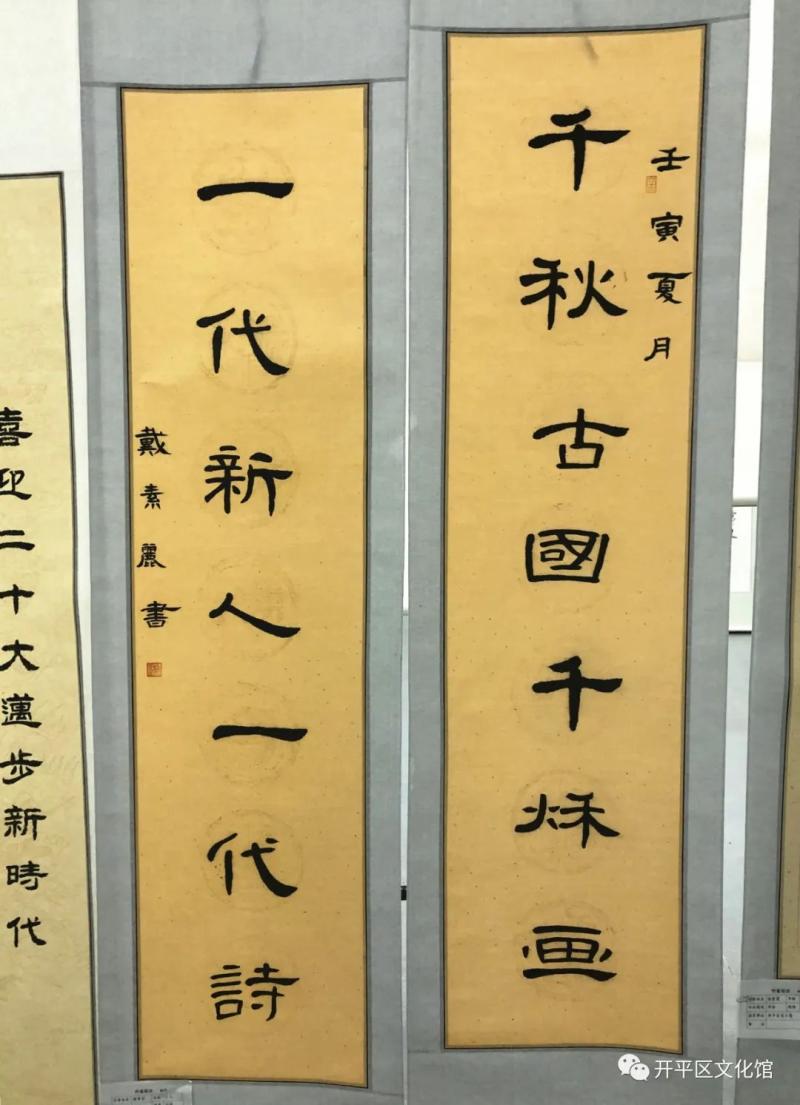 壬寅夏月
千秋古國千秌画
一代新人一代詩
戴素麗書
喜迎二十大邁步新時代
开平区文化馆